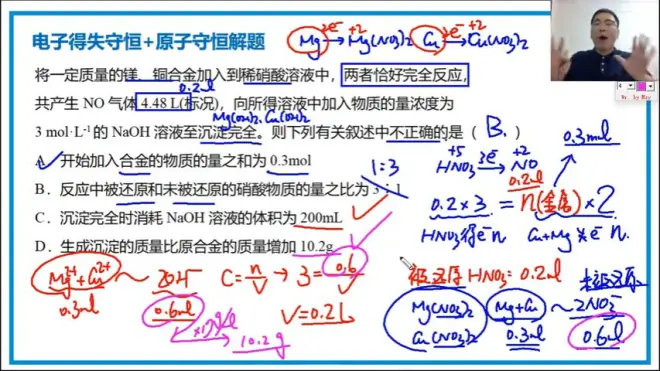 电子得失守恒+原子守恒解题
Mg 2e⁻ → +2 Mg(NO₃)₂ Cu 2e⁻ → +2 Cu(NO₃)₂
将一定质量的镁、铜合金加入到稀硝酸溶液中，两者恰好完全反应，
0.2ml
共产生 NO 气体 4.48 L(标况)，向所得溶液中加入物质的量浓度为
Mg(OH)₂、Cu(OH)₂
3 mol·L⁻¹的 NaOH 溶液至沉淀完全。则下列有关叙述中不正确的是（ B. ）
A．开始加入合金的物质的量之和为 0.3mol
1:3
B．反应中被还原和未被还原的硝酸物质的量之比为 3：1
C．沉淀完全时消耗 NaOH 溶液的体积为 200mL
D．生成沉淀的质量比原合金的质量增加 10.2g
0.3mol
+5 3e⁻ +2
HNO₃ → NO
0.2ml
0.2×3 = n(金属)×2
HNO₃得e⁻n Cu+Mg失e⁻n.
Mg²⁺+Cu²⁺ ~ 2OH⁻
0.3ml 0.6ml
×17g/l
10.2g
C=n/V → 3= 0.6
V=0.2L
被还原 HNO₃=0.2ml
未被还原
Mg(NO₃)₂
Cu(NO₃)₂
Mg+Cu ~ 2NO₃⁻
0.3ml 0.6ml